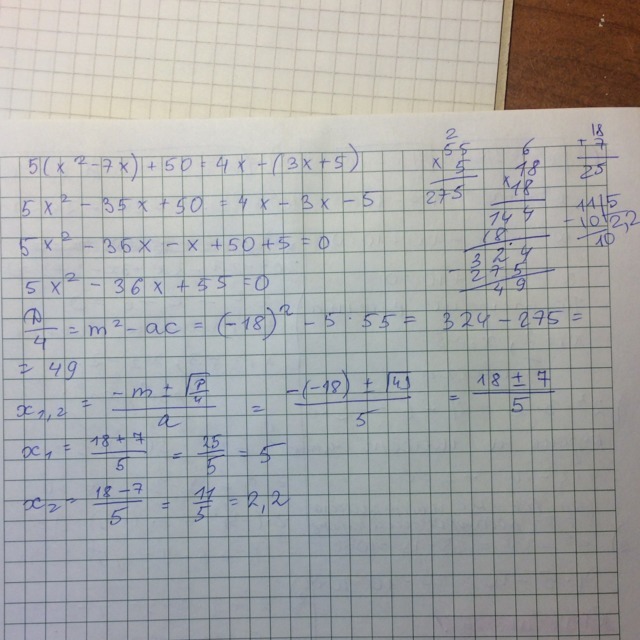 5(x²-7x)+50=4x-(3x+5)
5x²-35x+50=4x-3x-5
5x²-35x-x+50+5=0
5x²-36x+55=0
D/4=m²-ac=(-18)²-5·55= 324-275=
=49
x₁,₂=(-m±√(D/4))/a=(-(-18)±√49)/5=(18±7)/5
x₁=(18+7)/5=25/5=5
x₂=(18-7)/5=11/5=2,2
2
55
×5
275
6
18
×18
144
18
324
-275
49
18
+7
25
11|5
-10|2,2
10